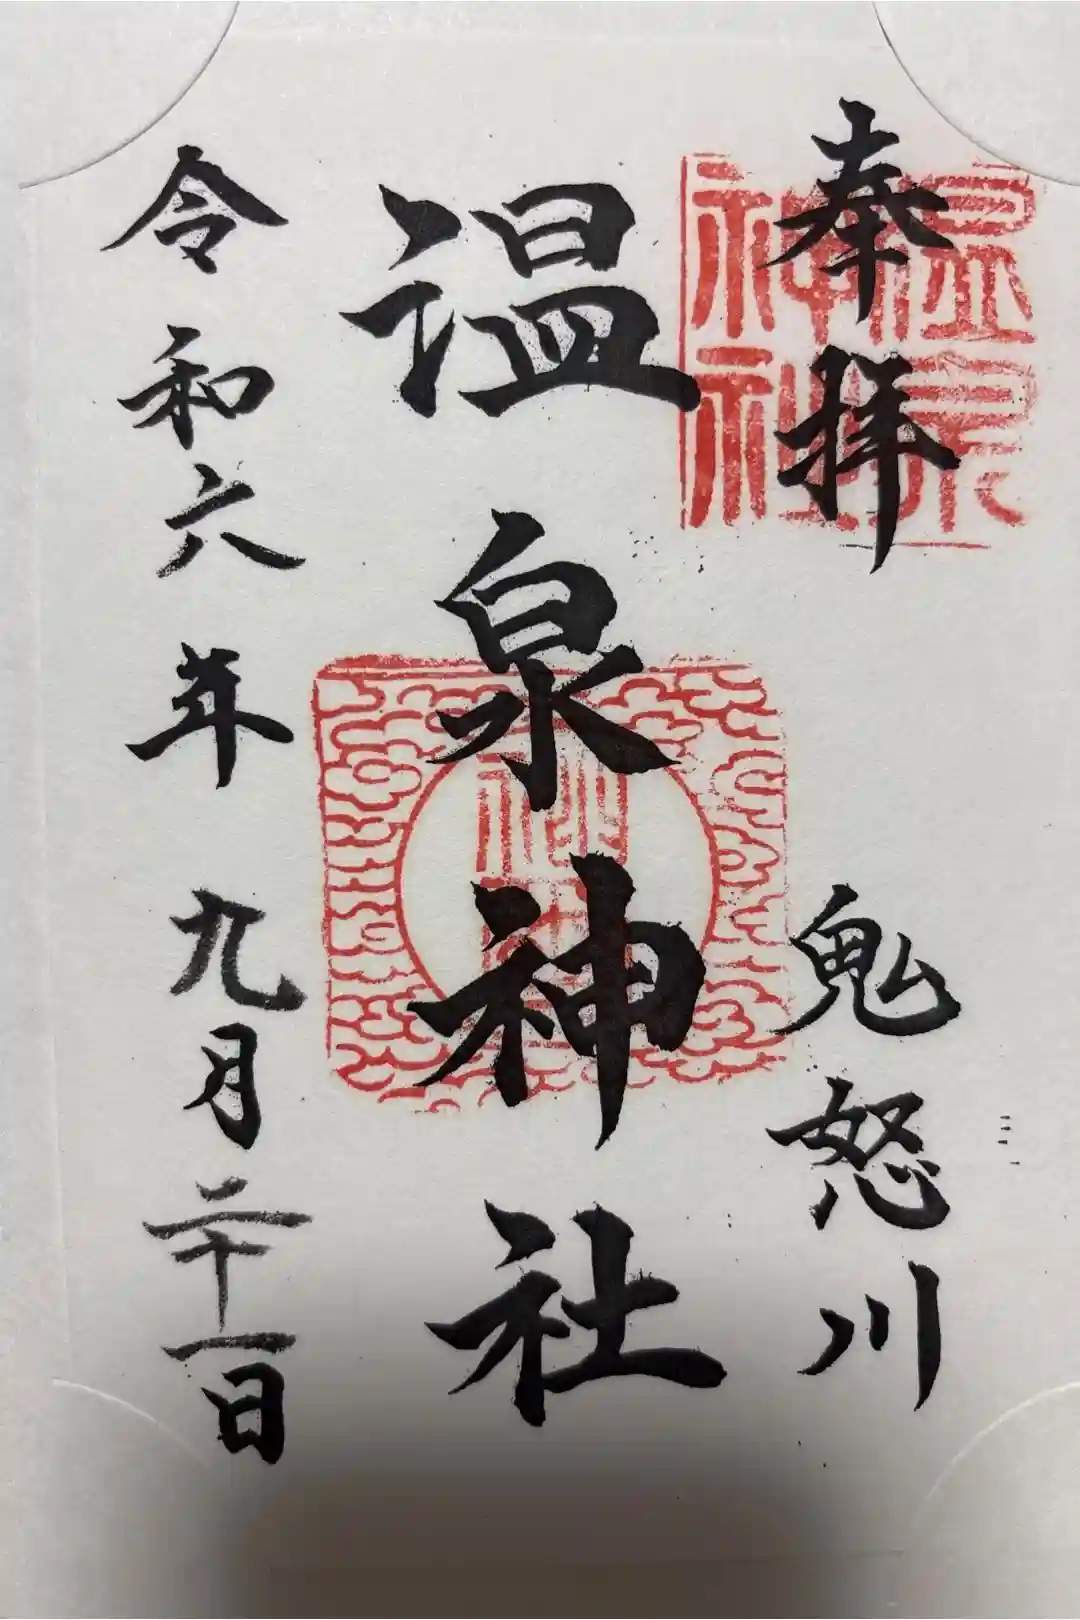 奉拝
鬼怒川
温泉神社
令和六年九月二十一日
温泉
神社